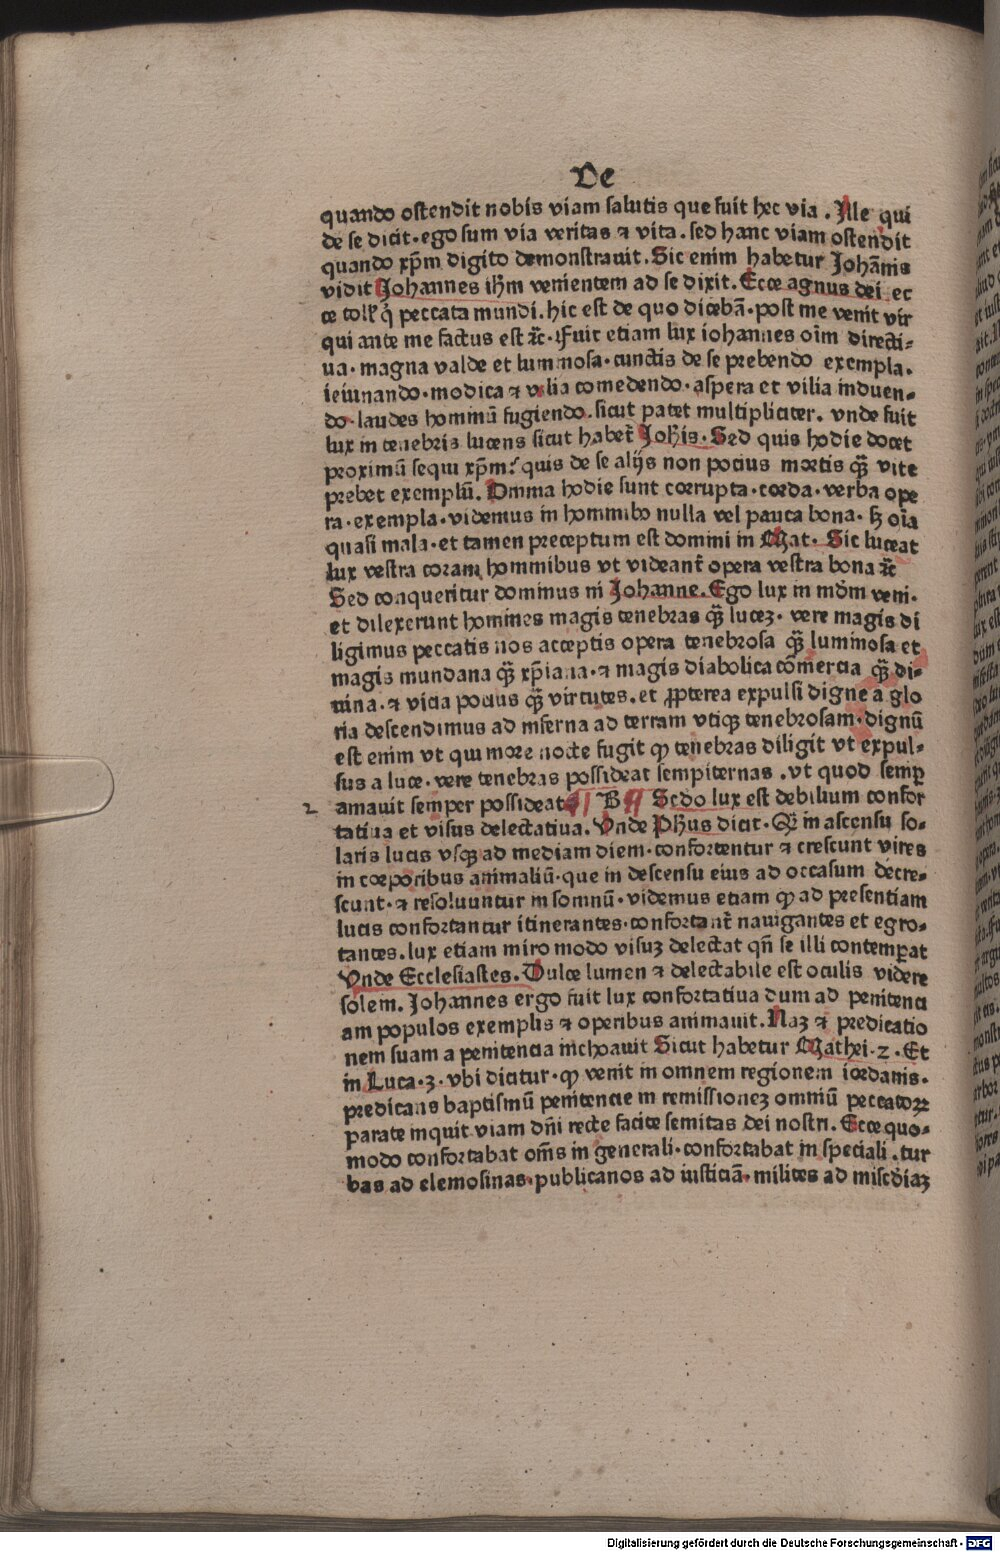 De
quando ostendit nobis viam salutis que fuit hec via . Ille qui
de se dicit · ego sum via veritas ⁊ vita . sed hanc viam ostendit
quando xp̄m digito demonstrauit. Sic enim habetur Johānis
vidit Johannes ihm̄ venientem ad se dixit. Ecce agnus dei ec
ce toll' q̇ peccata mundi. hic est de quo dicebā · post me venit vir
qui ante me factus est ⁊c̄ · Fuit etiam lux iohannes oīm directi⸗
ua · magna valde et luminosa · cunctis de se prebendo exempla .
ieiunando · modica ⁊ vilia comedendo · aspera et vilia induen⸗
do · laudes hominū fugiendo . sicut patet multipliciter . vnde fuit
lux in tenebris lucens sicut habet̄ Joh̄is · Sed quis hodie docet
proximū sequi xp̄m? quis de se alijs non pocius mortis qȝ̄ vite
prebet exemplū. Omnia hodie sunt corrupta · corda · verba ope
ra · exempla · videmus in hominibꝰ nulla vel pauca bona · sȝ oīa
quasi mala · et tamen preceptum est domini in Mat · Sic luceat
lux vestra coram hominibus vt videant̄ opera vestra bona ⁊c̄
Sed conqueritur dominus in Johanne. Ego lux in mūdm veni ·
et dilexerunt homines magis tenebras qȝ̄ luceȝ · vere magis di
ligimus peccatis nos acceptis opera tenebrosa qȝ̄ luminosa et
magis mundana qȝ̄ xp̄iana · ⁊ magis diabolica cōmercia qȝ̄ di⸗
uina · ⁊ vicia pocius qȝ̄ virtutes . et ꝓpterea expulsi digne a glo
ria descendimus ad inferna ad terram vtiqȝ tenebrosam · dignū
est enim vt qui more nocte fugit qꝫ tenebras diligit vt expul⸗
sus a luce · vere tenebras possideat sempiternas . vt quod semꝑ
2 amauit semper possideat B Scdo lux est debilium confor
tatiua et visus delectatiua . Vnde Ph̄us dicit · Qꝫ in ascensu so⸗
laris lucis vsqȝ ad mediam diem · confortentur ⁊ crescunt vires
in corporibus animaliū · que in descensu eius ad occasum decre⸗
scunt · ⁊ resoluuntur in somnū · videmus etiam qꝫ ad presentiam
lucis confortantur itinerantes · confortant̄ nauigantes et egro⸗
tantes . lux etiam miro modo visuȝ delectat qn̄ se illi contemꝑat
Vnde Ecclesiastes . Dulce lumen ⁊ delectabile est oculis videre
solem . Johannes ergo fuit lux confortatiua dum ad penitenci
am populos exemplis ⁊ operibus animauit . Naȝ ⁊ predicatio
nem suam a penitencia inchoauit Sicut habetur Mathei · 2 . Et
in Luca · 3 · vbi dicitur · qꝫ venit in omnem regionem iordanis .
predicans baptismū penitencie in remissioneȝ omniū peccatoꝝ
parate inquit viam dn̄i recte facite semitas dei nostri . Ecce quo⸗
modo confortabat om̄s in generali · confortabat in speciali . tur
bas ad elemosinas · publicanos ad iusticiā · milites ad misc̄diaȝ
Digitalisierung gefördert durch die Deutsche Forschungsgemeinschaft - DFG